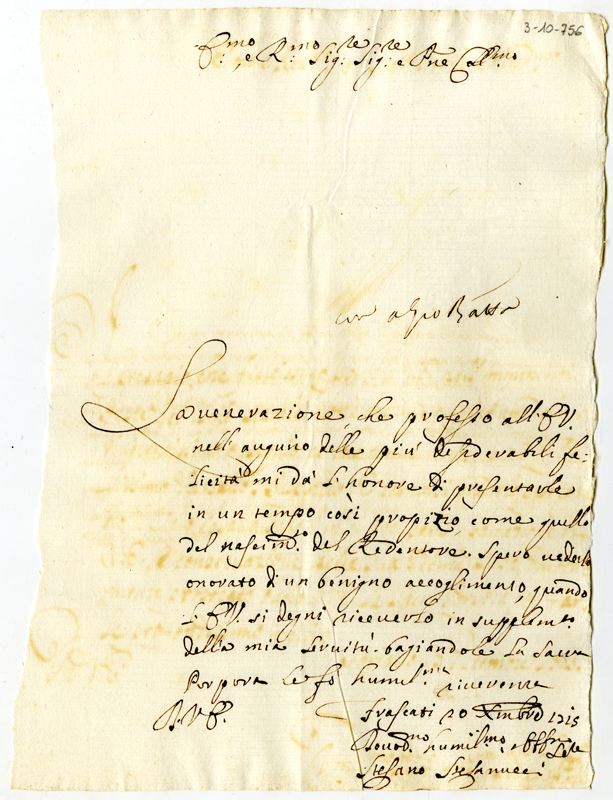 3-10-756
E.mo, e R.mo Sig.re Sig.re e Pne Col.mo
a Gio Batta
La venerazione, che professo all'E.V.
nell'augurio delle più desiderabili fe-
licità mi dà l'honore di presentarle
in un tempo così propizio, come quello
del nascim.to del Redentore. Spero vederlo
onorato di un benigno accoglimento, quando
l'E.V. si degni riceverlo in supplem.to
della mia servitù. bagiandole la sacra
Porpora le fò humil.ma riverenza
Frascati 20 Xmbre 1715
humil.mo
Stefano Stefanucci